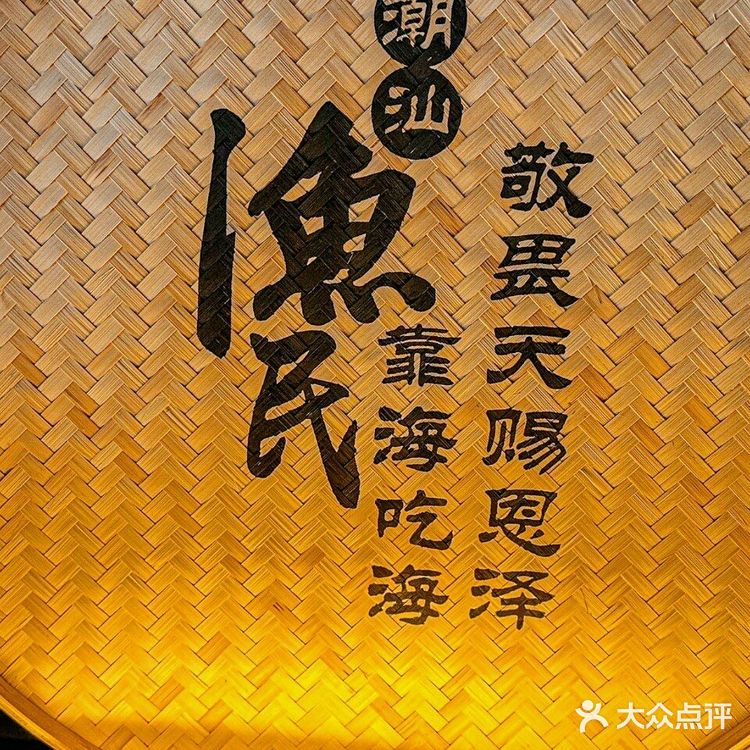 敬畏天赐恩泽
潮汕
靠海吃海
渔民
大众点评